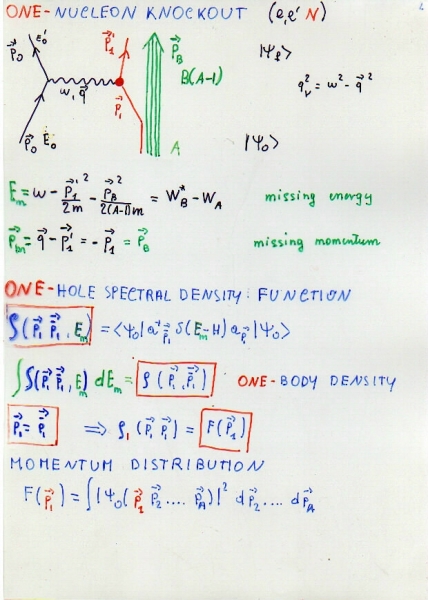 ONE-NUCLEON KNOCKOUT (e,e' N)
p⃗₀' E₀' p⃗₁' p⃗_B |Ψ_f⟩
B(A-1) q_ν² = ω² - q⃗²
ω, q⃗ p⃗₁
p⃗₀ E₀ A |Ψ₀⟩
E_m = ω - p⃗₁'²/2m - p⃗_B²/2(A-1)m = W_B* - W_A missing energy
p⃗_m = q⃗ - p⃗₁' = - p⃗₁ = p⃗_B missing momentum
ONE-HOLE SPECTRAL DENSITY FUNCTION
S(p⃗₁ p̄⃗₁, E_m) = ⟨Ψ₀| a⁺_p̄⃗₁ δ(E_m-H) a_p⃗₁ |Ψ₀⟩
∫ S(p⃗₁ p̄⃗₁, E_m) dE_m = ρ(p⃗₁ p̄⃗₁) ONE-BODY DENSITY
p⃗₁ = p̄⃗₁ ⇒ ρ₁(p⃗₁ p⃗₁) = F(p⃗₁)
MOMENTUM DISTRIBUTION
F(p⃗₁) = ∫ |Ψ₀(p⃗₁ p⃗₂ .... p⃗_A)|² dp⃗₂ .... dp⃗_A